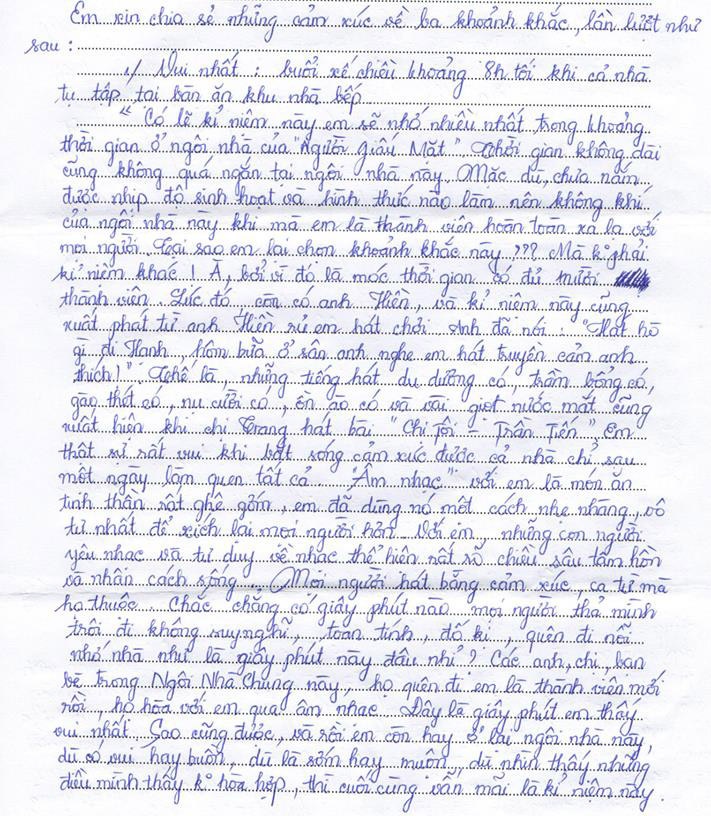 Em xin chia sẻ những cảm xúc về ba khoảnh khắc, lần lượt như
sau :
1/ Vui nhất : buổi xế chiều khoảng 8h tối khi cả nhà
tụ tập tại bàn ăn khu nhà bếp
"Có lẽ kỉ niệm này em sẽ nhớ nhiều nhất trong khoảng
thời gian ở ngôi nhà của "Người Giấu Mặt" Thời gian không dài
cũng không quá ngắn tại ngôi nhà này. Mặc dù, chưa nắm
được nhịp độ sinh hoạt và hình thức nào làm nên không khí
của ngôi nhà này khi mà em là thành viên hoàn toàn xa lạ với
mọi người. Tại sao em lại chọn khoảnh khắc này ??? Mà k phải
kỉ niệm khác ! À, bởi vì đó là mốc thời gian có đủ mười
thành viên. Lúc đó, còn có anh Hiền, và kỉ niệm này cũng
xuất phát từ anh Hiền rủ em hát chơi. Anh đã nói : "Hát hò
gì đi Hạnh, hôm bữa ở sân anh nghe em hát truyền cảm anh
thích!" Thế là, những tiếng hát du dương có, trầm bổng có,
gào thét có, nụ cười có, ồn ào có và vài giọt nước mắt cũng
xuất hiện khi chị Trang hát bài "Chị Tôi - Trần Tiến". Em
thật sự rất vui khi bắt sóng cảm xúc được cả nhà chỉ sau
một ngày làm quen tất cả. "Âm nhạc" với em là món ăn
tinh thần rất ghê gớm, em đã dùng nó một cách nhẹ nhàng, vô
tư nhất để xích lại mọi người hơn. Với em, những con người
yêu nhạc và tư duy về nhạc thể hiện rất rõ chiều sâu tâm hồn
và nhân cách sống... Mọi người hát bằng cảm xúc, ca từ mà
họ thuộc. Chắc chẳng có giây phút nào mọi người thả mình
trôi đi không suy nghĩ, toan tính, đố kị, quên đi nỗi
nhớ nhà như là giây phút này đâu nhỉ ? Các anh, chị, bạn
bè trong Ngôi Nhà Chung này, họ quên đi em là thành viên mới
rồi, họ hòa với em qua âm nhạc. Đây là giây phút em thấy
vui nhất. Sao cũng được, và rồi em còn hay ở lại ngôi nhà này,
dù có vui hay buồn, dù là sớm hay muộn, dù nhìn thấy những
điều mình thấy k hòa hợp, thì cuối cùng vẫn mãi là kỉ niệm này.